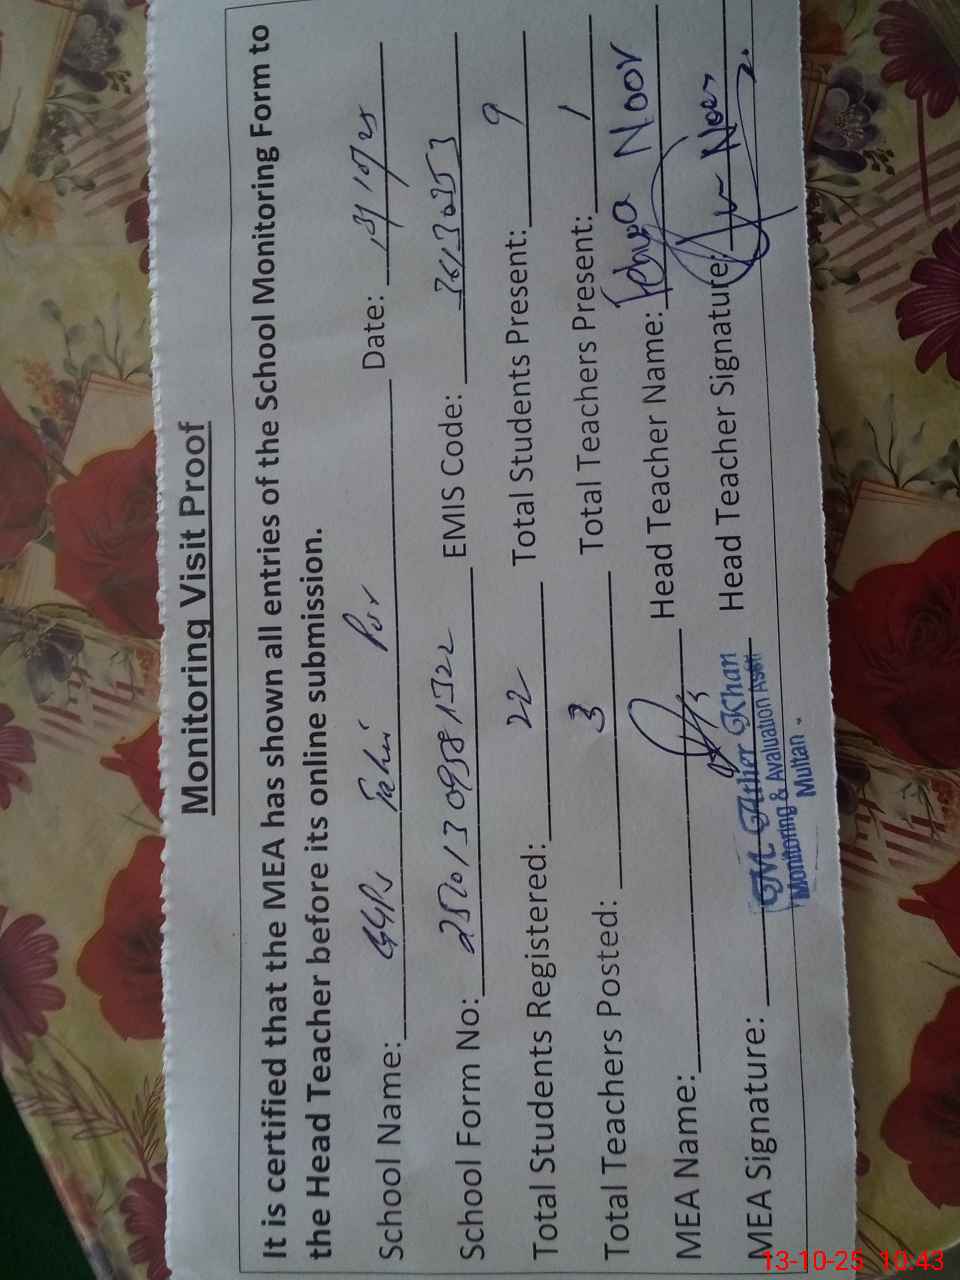 Monitoring Visit Proof
It is certified that the MEA has shown all entries of the School Monitoring Form to
the Head Teacher before its online submission.
School Name: GGPS Pur Date: 13/10/25
School Form No: EMIS Code:
Total Students Registered: 22 Total Students Present: 9
Total Teachers Posted: 3 Total Teachers Present: 1
MEA Name: Head Teacher Name: Noor
MEA Signature: Head Teacher Signature: Noor
M. Ather Khan
Monitoring & Avaluation Asstt
Multan
13-10-25 10:43